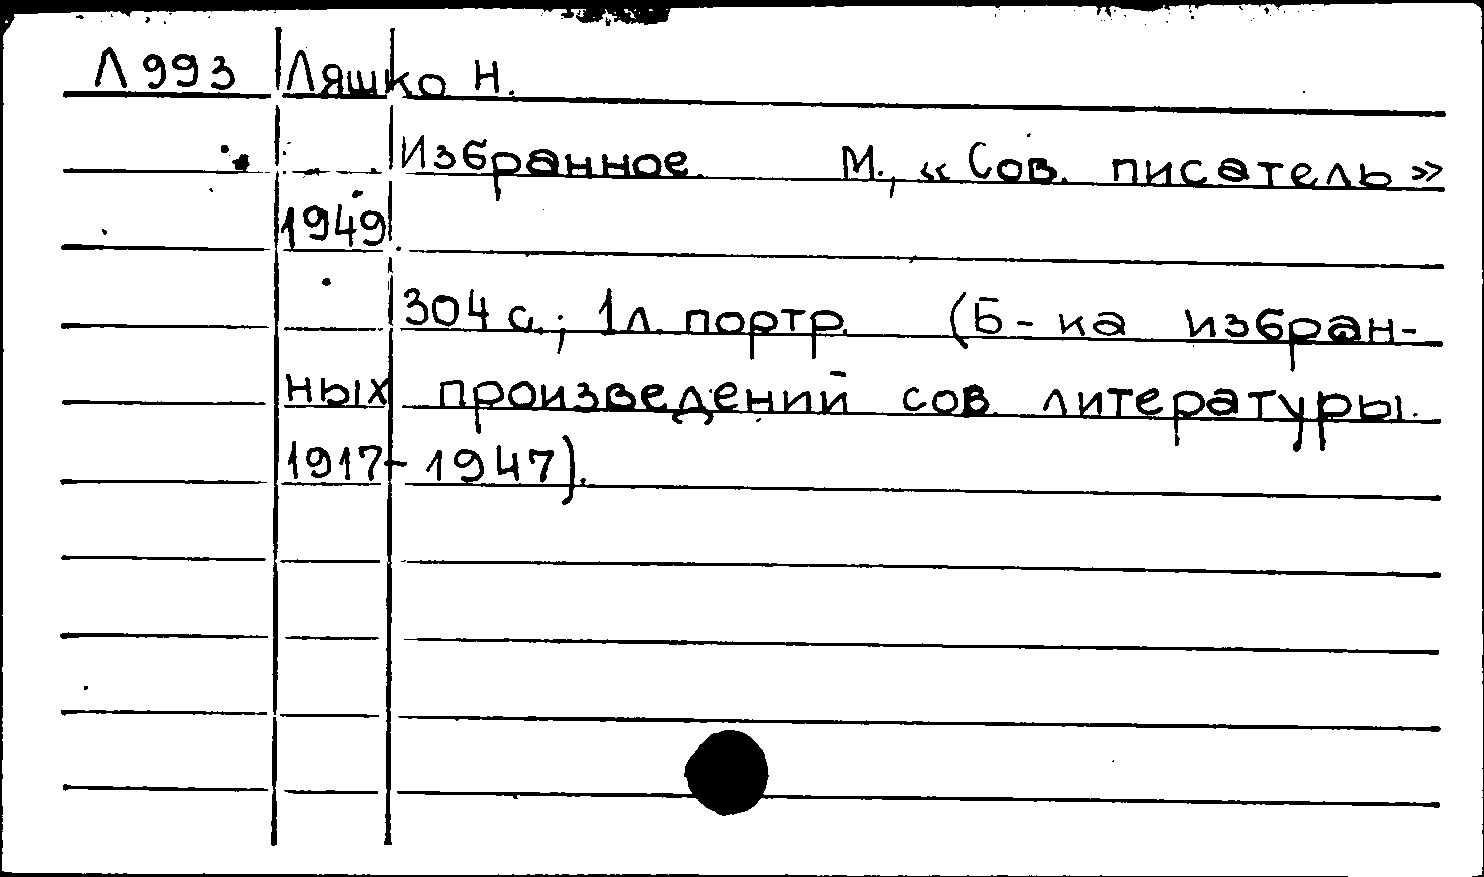 Л993 Ляшко Н.
Избранное. М., «Сов. писатель»
1949.
304 с.; 1л. портр. (Б-ка избран-
ных произведений сов. литературы.
1917-1947).